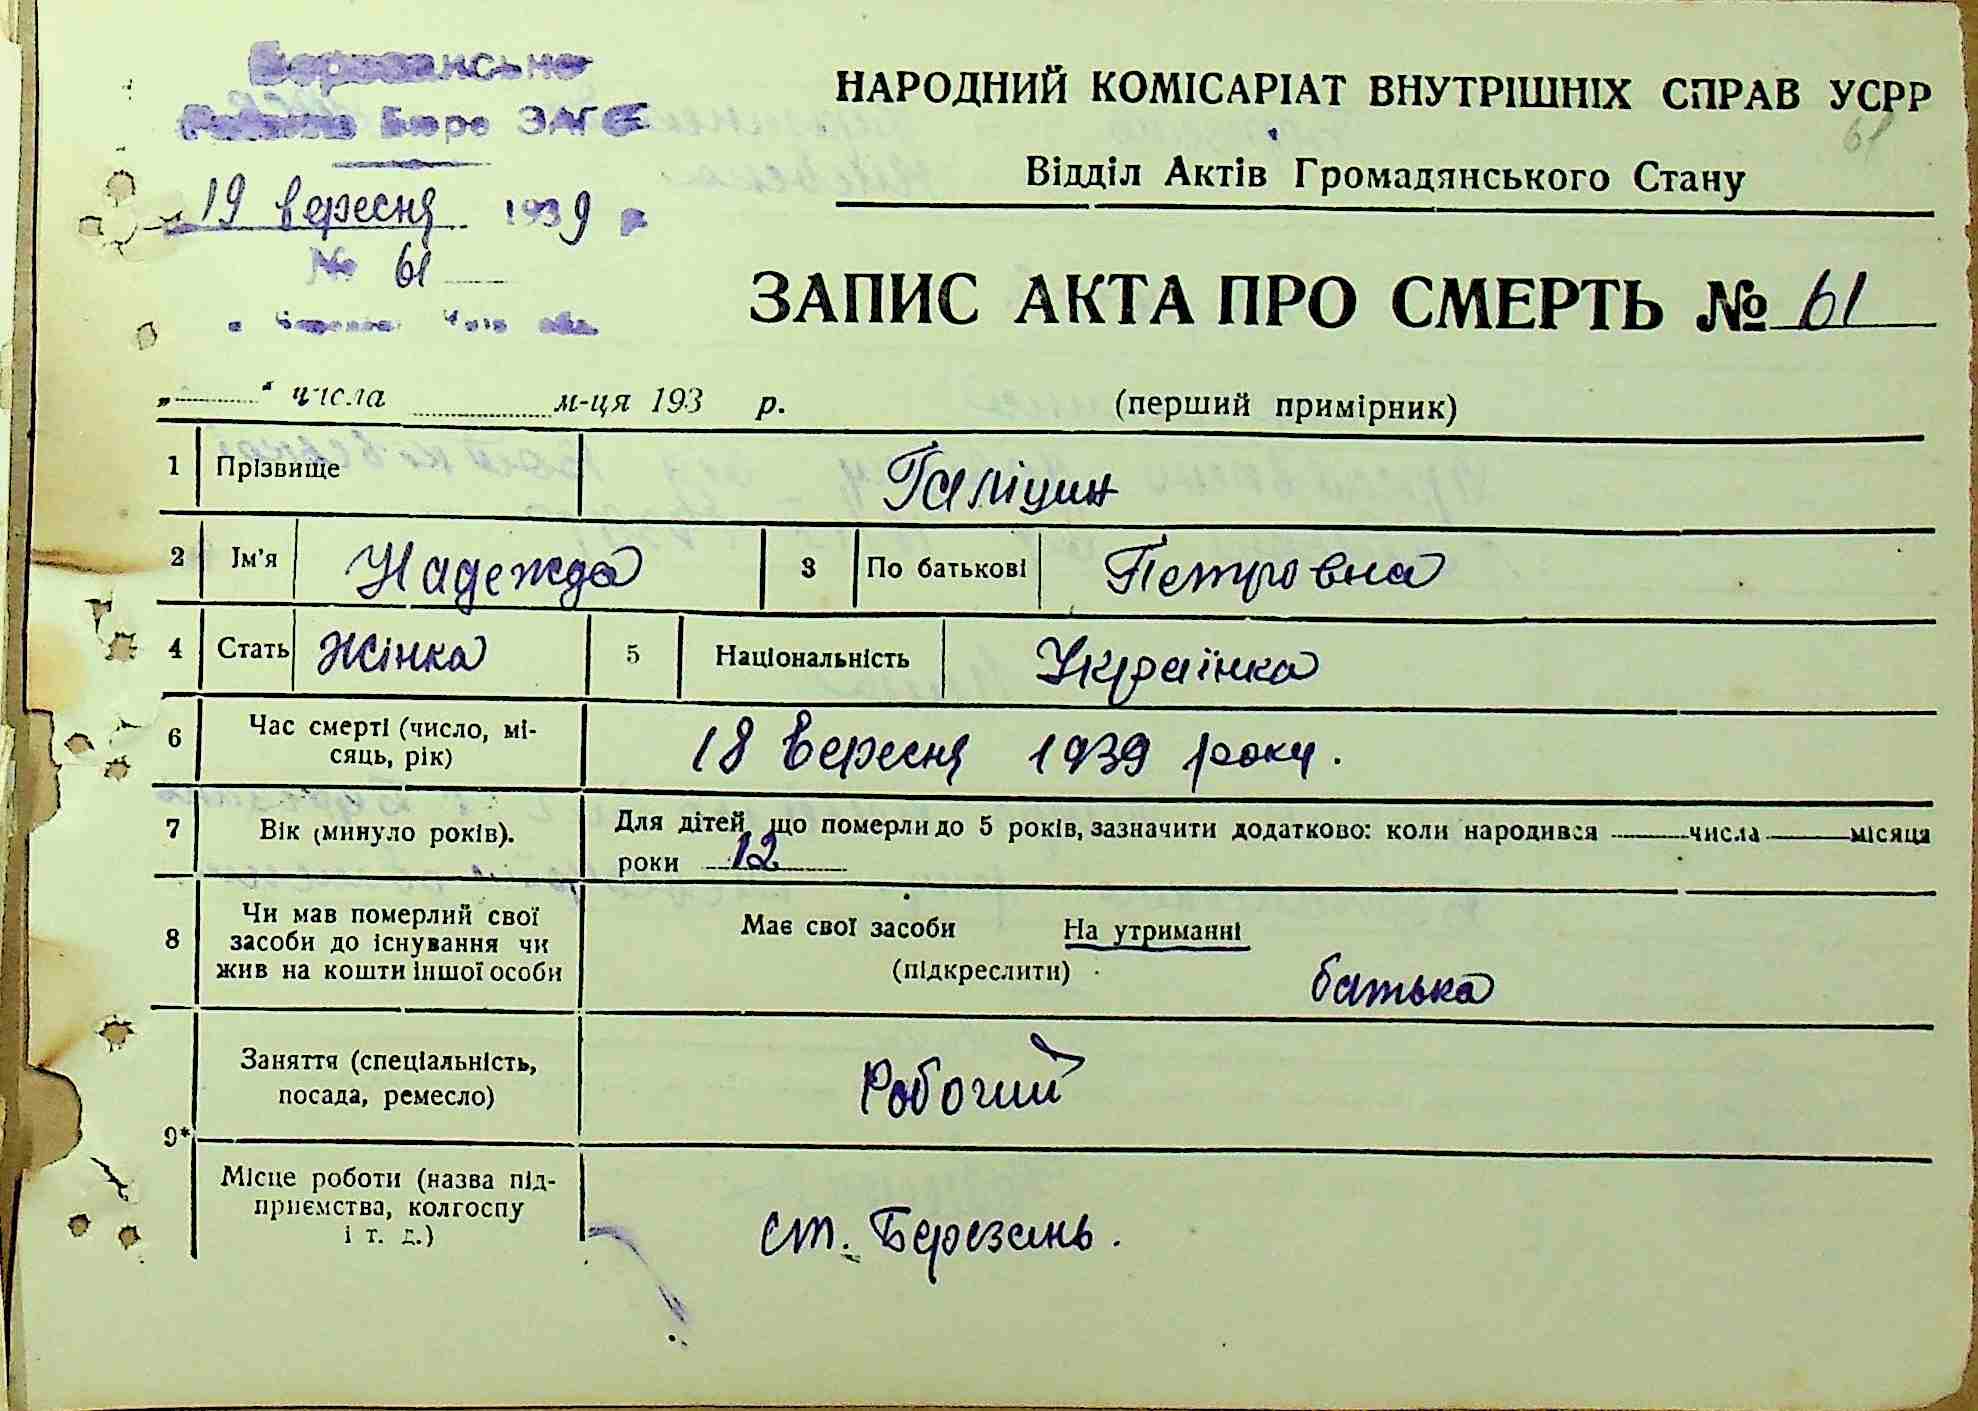 Березанське
Районне Бюро ЗАГС
19 вересня 1939 р
№ 61
НАРОДНИЙ КОМІСАРІАТ ВНУТРІШНІХ СПРАВ УСРР
61
Відділ Актів Громадянського Стану
ЗАПИС АКТА ПРО СМЕРТЬ № 61
„ “ числа м-ця 193 р.
(перший примірник)
1 Прізвище Галіцин
2 Ім'я Надежда 3 По батькові Петровна
4 Стать Жінка 5 Національність Українка
6 Час смерті (число, мі-
сяць, рік) 18 вересня 1939 року.
7 Вік (минуло років). Для дітей, що померли до 5 років, зазначити додатково: коли народився — числа — місяця
роки 12
8 Чи мав померлий свої
засоби до існування чи
жив на кошти іншої особи
Має свої засоби На утриманні
(підкреслити)
батька
9* Заняття (спеціальність,
посада, ремесло) Робочий
Місце роботи (назва під-
приємства, колгоспу
і т. д.) ст. Березань.